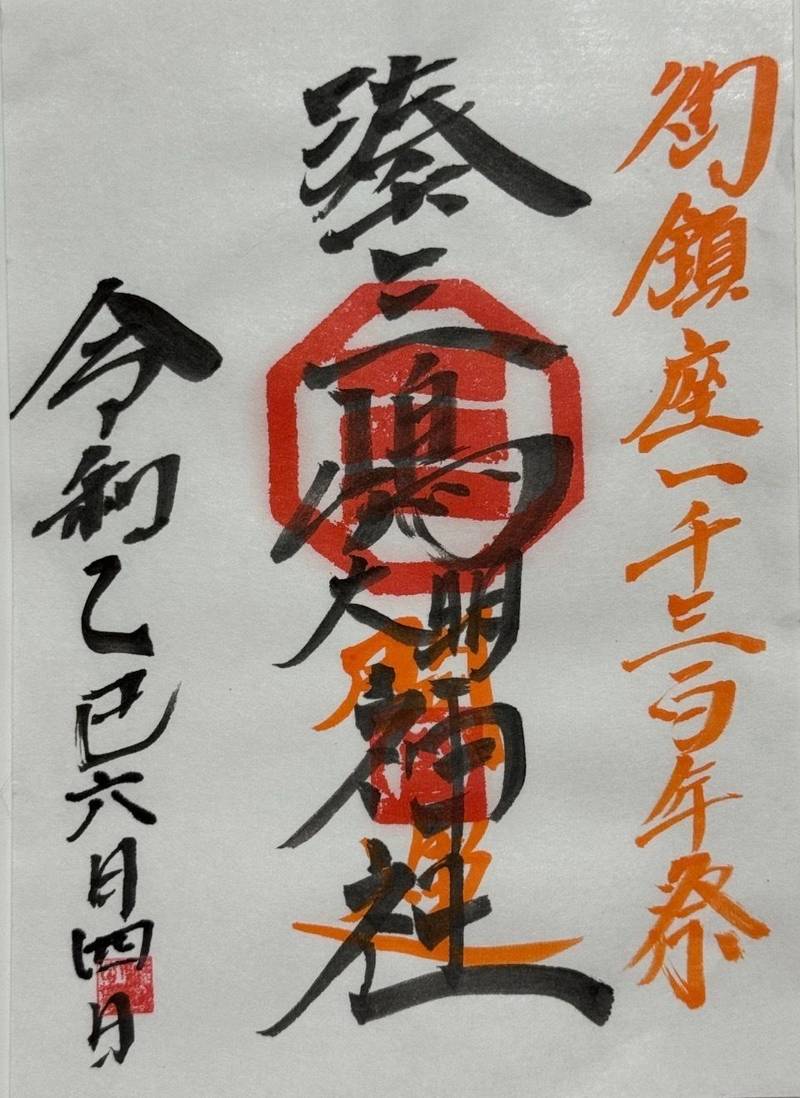 御鎮座一千三百年祭
湊三嶋大明神社
開運
令和乙巳六月四日